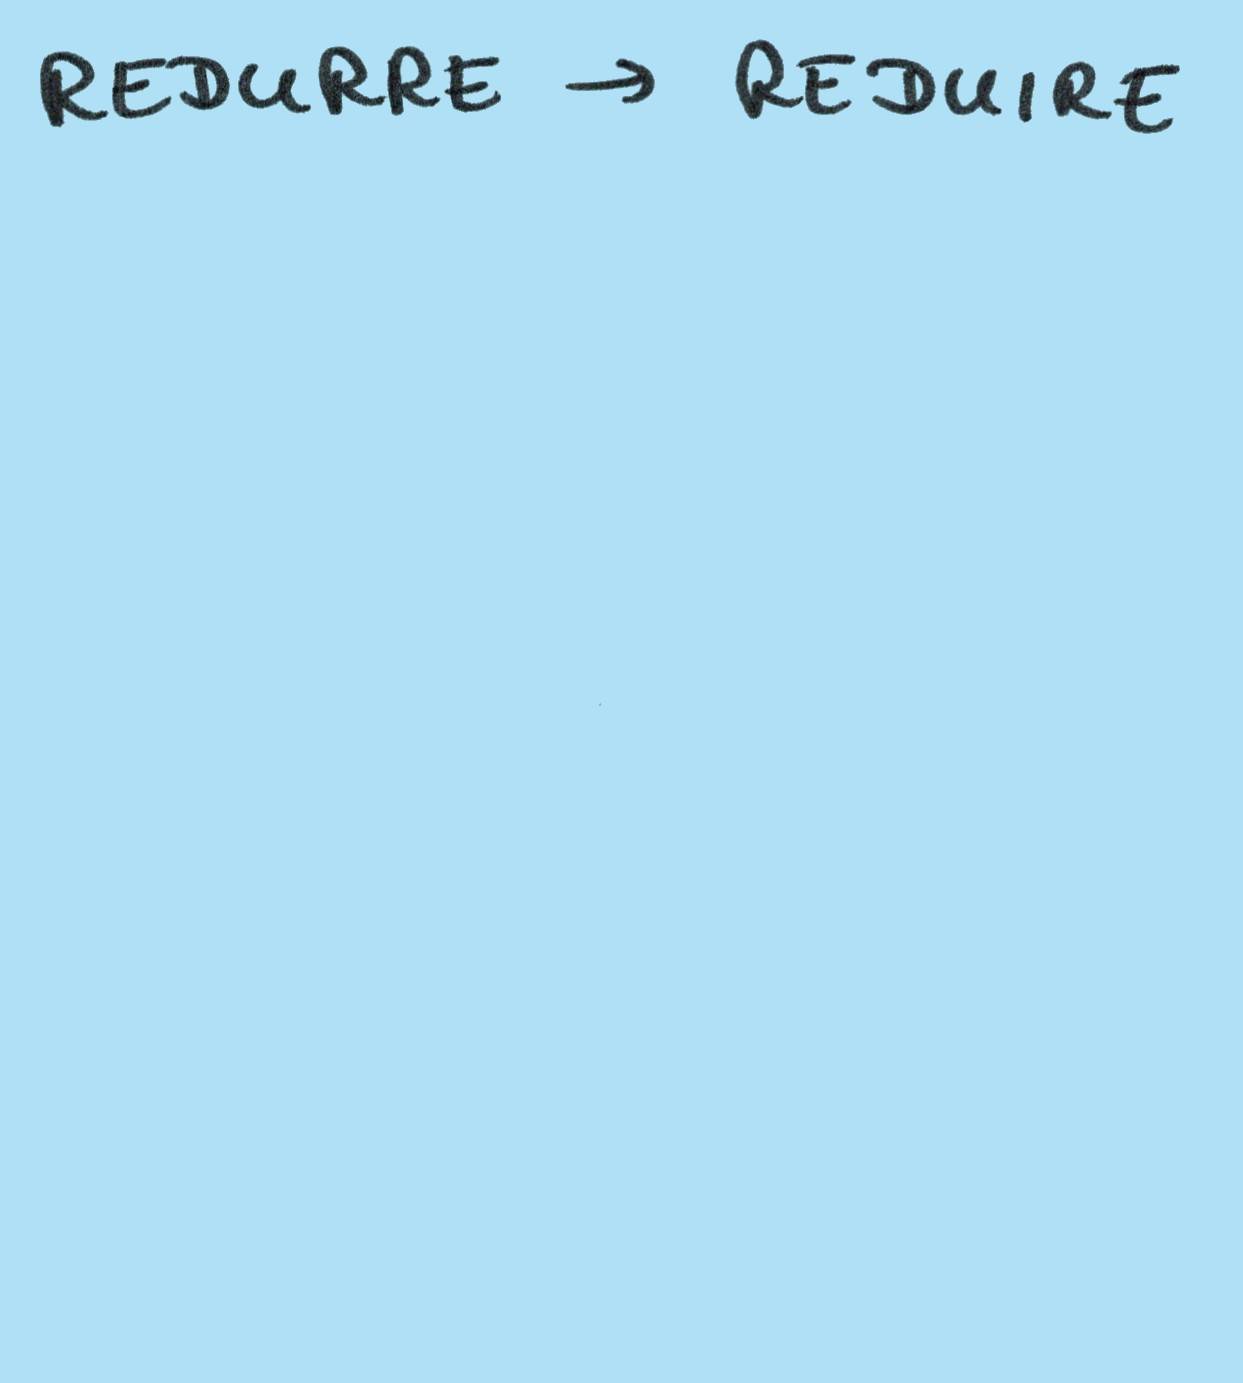 REDURRE → REDUIRE